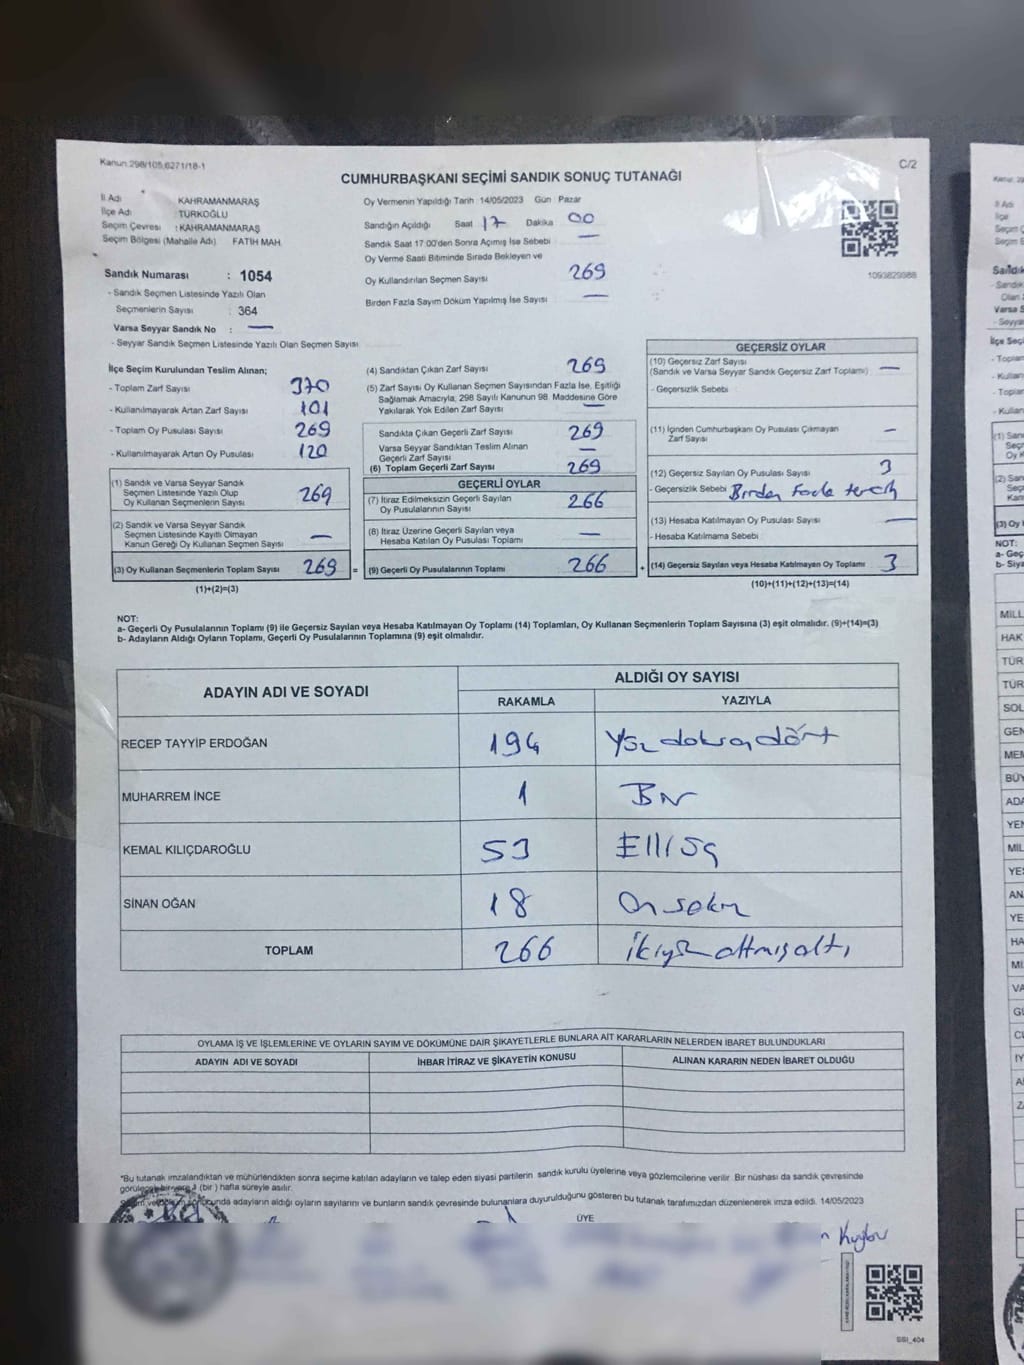 Kanun 298/105,6271/18-1
C/2
CUMHURBAŞKANI SEÇİMİ SANDIK SONUÇ TUTANAĞI
İl Adı KAHRAMANMARAŞ
İlçe Adı TÜRKOĞLU
Seçim Çevresi : KAHRAMANMARAŞ
Seçim Bölgesi (Mahalle Adı) FATİH MAH.
Sandık Numarası : 1054
- Sandık Seçmen Listesinde Yazılı Olan
Seçmenlerin Sayısı : 364
Varsa Seyyar Sandık No : —
- Seyyar Sandık Seçmen Listesinde Yazılı Olan Seçmen Sayısı
Oy Vermenin Yapıldığı Tarih 14/05/2023 Gün Pazar
Sandığın Açıldığı Saat 17 Dakika 00
Sandık Saat 17.00'den Sonra Açımış İse Sebebi —
Oy Verme Saati Bitiminde Sırada Bekleyen ve
Oy Kullandırılan Seçmen Sayısı 269
Birden Fazla Sayım Döküm Yapılmış İse Sayısı —
1093829988
İlçe Seçim Kurulundan Teslim Alınan;
- Toplam Zarf Sayısı 370
- Kullanılmayarak Artan Zarf Sayısı 101
- Toplam Oy Pusulası Sayısı 269
- Kullanılmayarak Artan Oy Pusulası 120
(1) Sandık ve Varsa Seyyar Sandık
Seçmen Listesinde Yazılı Olup
Oy Kullanan Seçmenlerin Sayısı 269
(2) Sandık ve Varsa Seyyar Sandık
Seçmen Listesinde Kayıtlı Olmayan
Kanun Gereği Oy Kullanan Seçmen Sayısı —
(3) Oy Kullanan Seçmenlerin Toplam Sayısı 269 =
(1)+(2)=(3)
(4) Sandıktan Çıkan Zarf Sayısı 269
(5) Zarf Sayısı Oy Kullanan Seçmen Sayısından Fazla İse, Eşitliği
Sağlamak Amacıyla, 298 Sayılı Kanunun 98. Maddesine Göre
Yakılarak Yok Edilen Zarf Sayısı —
Sandıkta Çıkan Geçerli Zarf Sayısı 269
Varsa Seyyar Sandıktan Teslim Alınan
Geçerli Zarf Sayısı —
(6) Toplam Geçerli Zarf Sayısı 269
GEÇERLİ OYLAR
(7) İtiraz Edilmeksizin Geçerli Sayılan
Oy Pusulalarının Sayısı 266
(8) İtiraz Üzerine Geçerli Sayılan veya
Hesaba Katılan Oy Pusulası Toplamı —
(9) Geçerli Oy Pusulalarının Toplamı 266 +
GEÇERSİZ OYLAR
(10) Geçersiz Zarf Sayısı
(Sandık ve Varsa Seyyar Sandık Geçersiz Zarf Toplamı) —
- Geçersizlik Sebebi
(11) İçinden Cumhurbaşkanı Oy Pusulası Çıkmayan
Zarf Sayısı —
(12) Geçersiz Sayılan Oy Pusulası Sayısı 3
- Geçersizlik Sebebi Birden Fazla tercih
(13) Hesaba Katılmayan Oy Pusulası Sayısı —
- Hesaba Katılmama Sebebi
(14) Geçersiz Sayılan veya Hesaba Katılmayan Oy Toplamı 3
(10)+(11)+(12)+(13)=(14)
NOT:
a- Geçerli Oy Pusulalarının Toplamı (9) ile Geçersiz Sayılan veya Hesaba Katılmayan Oy Toplamı (14) Toplamları, Oy Kullanan Seçmenlerin Toplam Sayısına (3) eşit olmalıdır. (9)+(14)=(3)
b- Adayların Aldığı Oyların Toplamı, Geçerli Oy Pusulalarının Toplamına (9) eşit olmalıdır.
ADAYIN ADI VE SOYADI
ALDIĞI OY SAYISI
RAKAMLA YAZIYLA
RECEP TAYYİP ERDOĞAN 194 Yüzdoksandört
MUHARREM İNCE 1 Bir
KEMAL KILIÇDAROĞLU 53 Elliüç
SİNAN OĞAN 18 Onsekiz
TOPLAM 266 ikiyüzaltmışaltı
OYLAMA İŞ VE İŞLEMLERİNE VE OYLARIN SAYIM VE DÖKÜMÜNE DAİR ŞİKAYETLERLE BUNLARA AİT KARARLARIN NELERDEN İBARET BULUNDUKLARI
ADAYIN ADI VE SOYADI İHBAR İTİRAZ VE ŞİKAYETİN KONUSU ALINAN KARARIN NEDEN İBARET OLDUĞU
*Bu tutanak imzalandıktan ve mühürlendikten sonra seçime katılan adayların ve talep eden siyasi partilerin sandık kurulu üyelerine veya gözlemcilerine verilir. Bir nüshası da sandık çevresinde
(bir) hafta süreyle asılır.
adayların aldığı oyların sayılarını ve bunların sandık çevresinde bulunanlara duyurulduğunu gösteren bu tutanak tarafımızdan düzenlenerek imza edildi. 14/05/2023
ÜYE
SSI_404
Sandık
NOT:
MİLL
HAK
TÜR
TÜR
SOL
GEN
MEM
BÜY
ADA
YEN
MİL
YE
AN
YE
HA
Mİ
VA